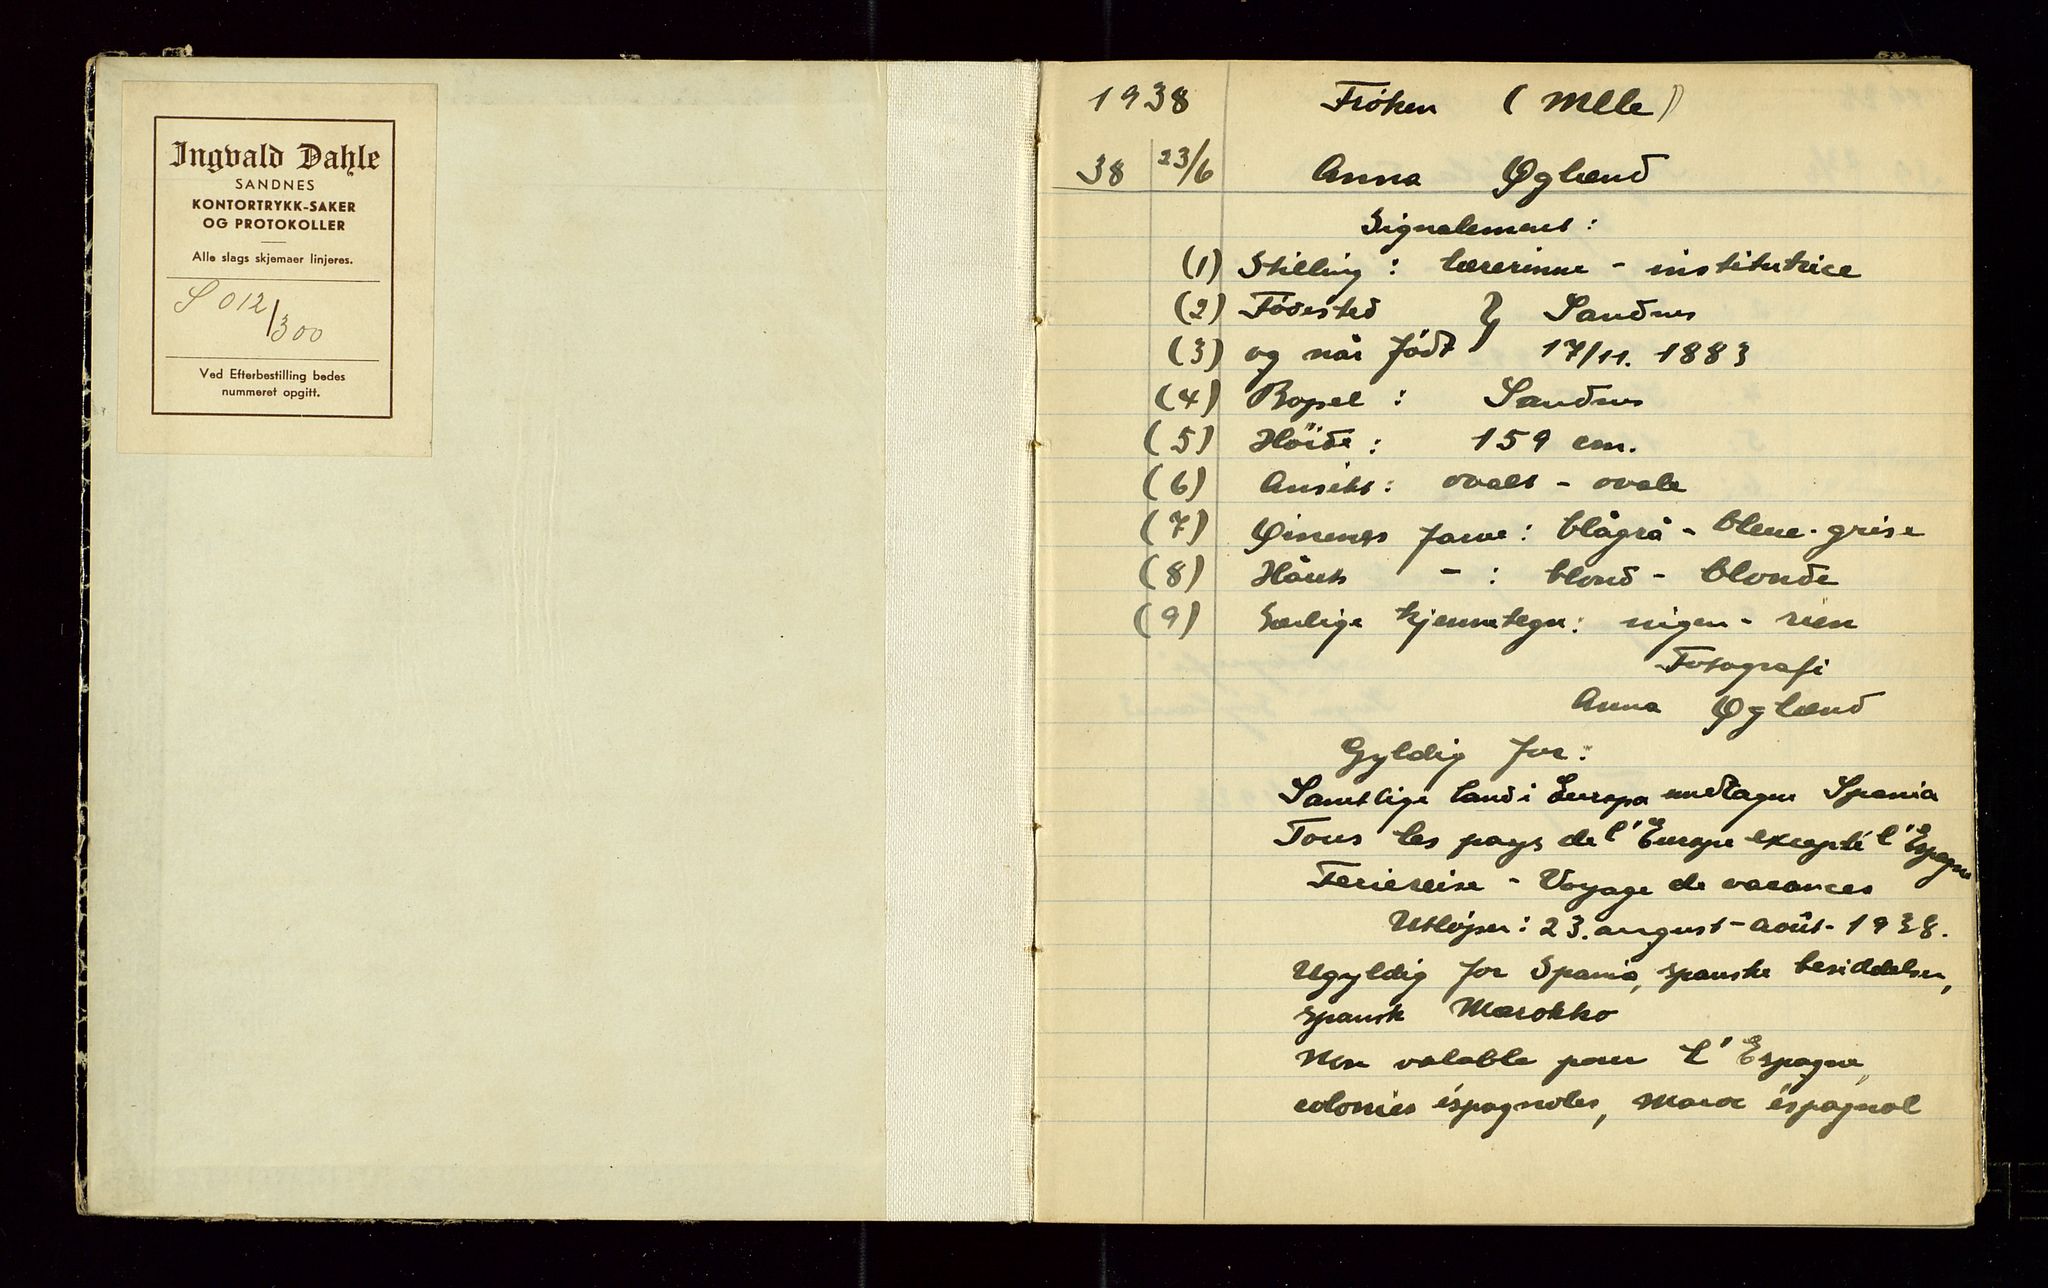 Ingvald Dahle
SANDNES
KONTORTRYKK-SAKER
OG PROTOKOLLER
Alle slags skjemaer linjeres.
S 012/300
Ved Efterbestilling bedes
nummeret opgitt.
1938 Frøken (Mlle)
38 23/6 Anna Øglænd
Signalement:
(1) Stilling: lærerinne - institutrice
(2) Fødested } Sandnes
(3) og når født 17/11. 1883
(4) Bopel: Sandnes
(5) Höide: 159 cm.
(6) Ansikt: ovalt - ovale
(7) Øinenes farve: blågrå - bleue-grise
(8) Hårets - : blond - blonde
(9) Særlige kjennetegn: ingen - rien
Fotografi
Anna Øglænd
Gyldig for:
Samtlige land i Europa undtagen Spania
Tous les pays de l'Europe excepté l'Espagne
Feriereise - Voyage de vacances
Utløper: 23. august - août - 1938.
Ugyldig for Spania, spanske besiddelser,
spansk Marokko
Non valable pour l'Espagne,
colonies éspagnoles, Maroc éspagnol